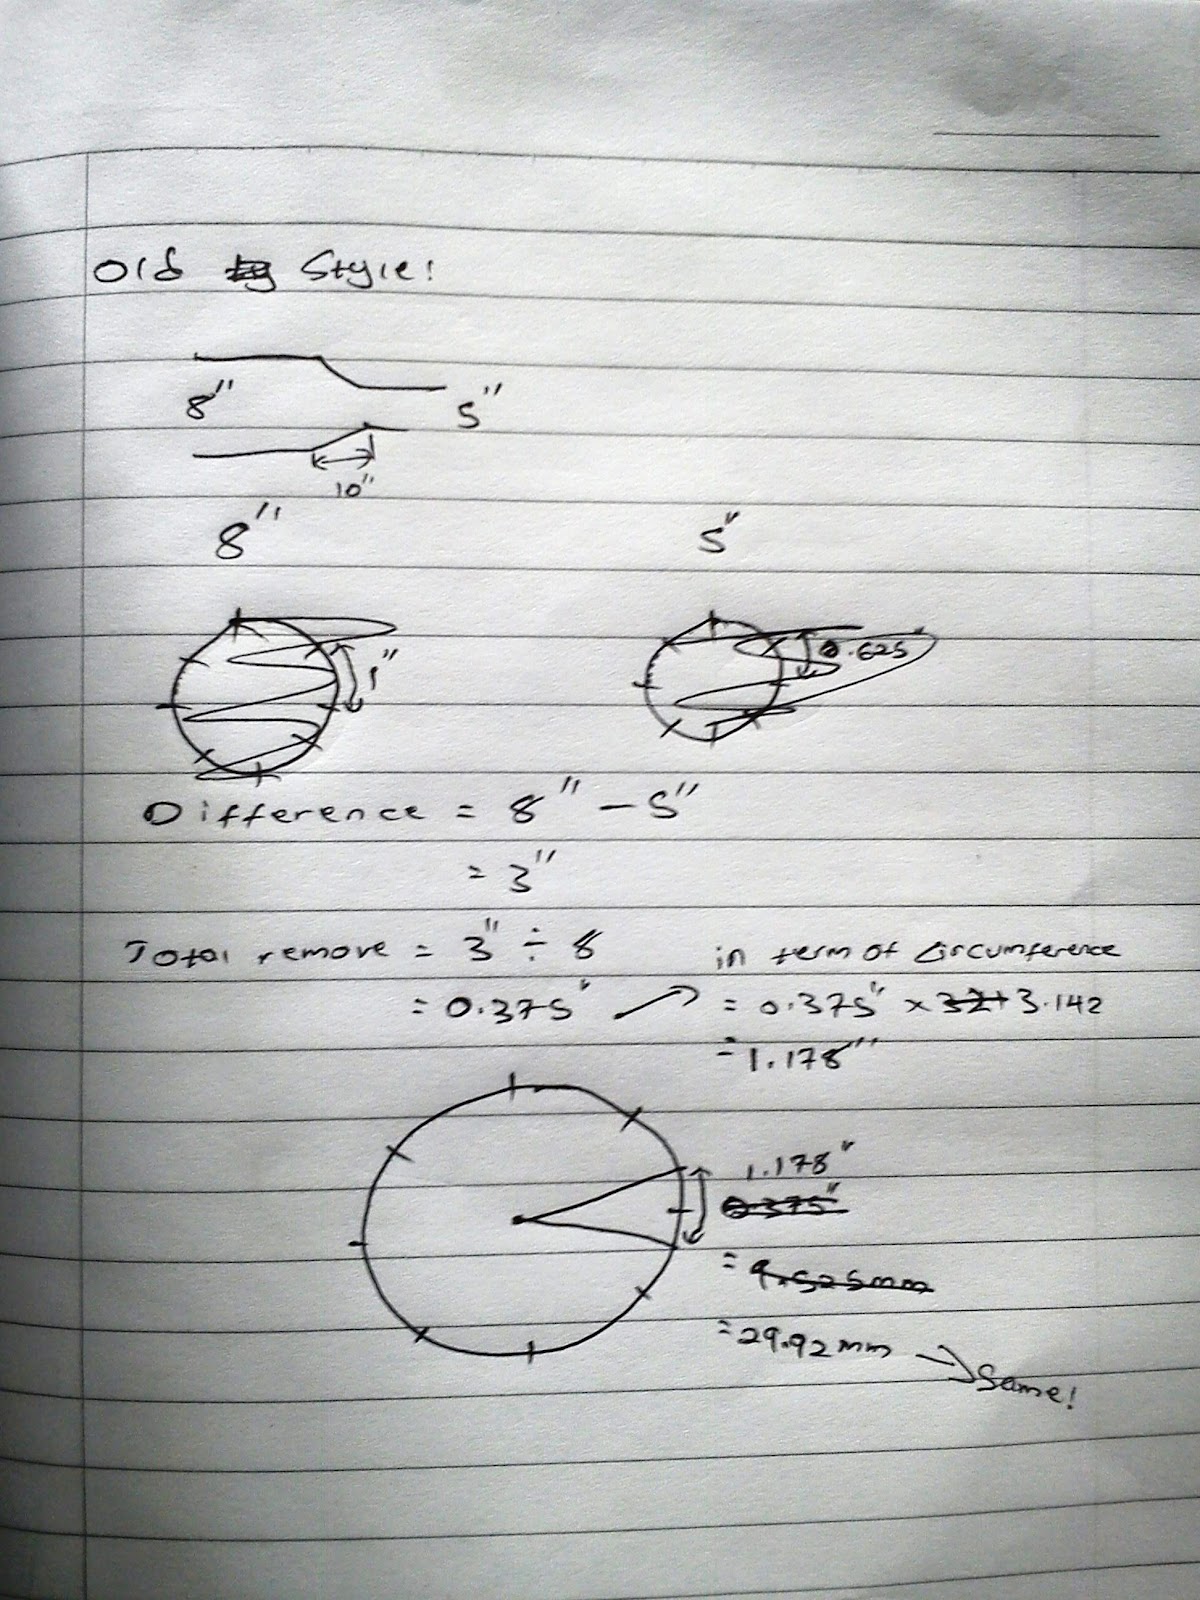 Old Style!
8" 5"
10"
8" 5"
1" 0.625"
Difference = 8" - 5"
= 3"
Total remove = 3" ÷ 8
= 0.375"
in term of circumference
= 0.375" x 3.142
= 1.178"
1.178"
0.375"
= 9.525mm
= 29.92mm → Same!